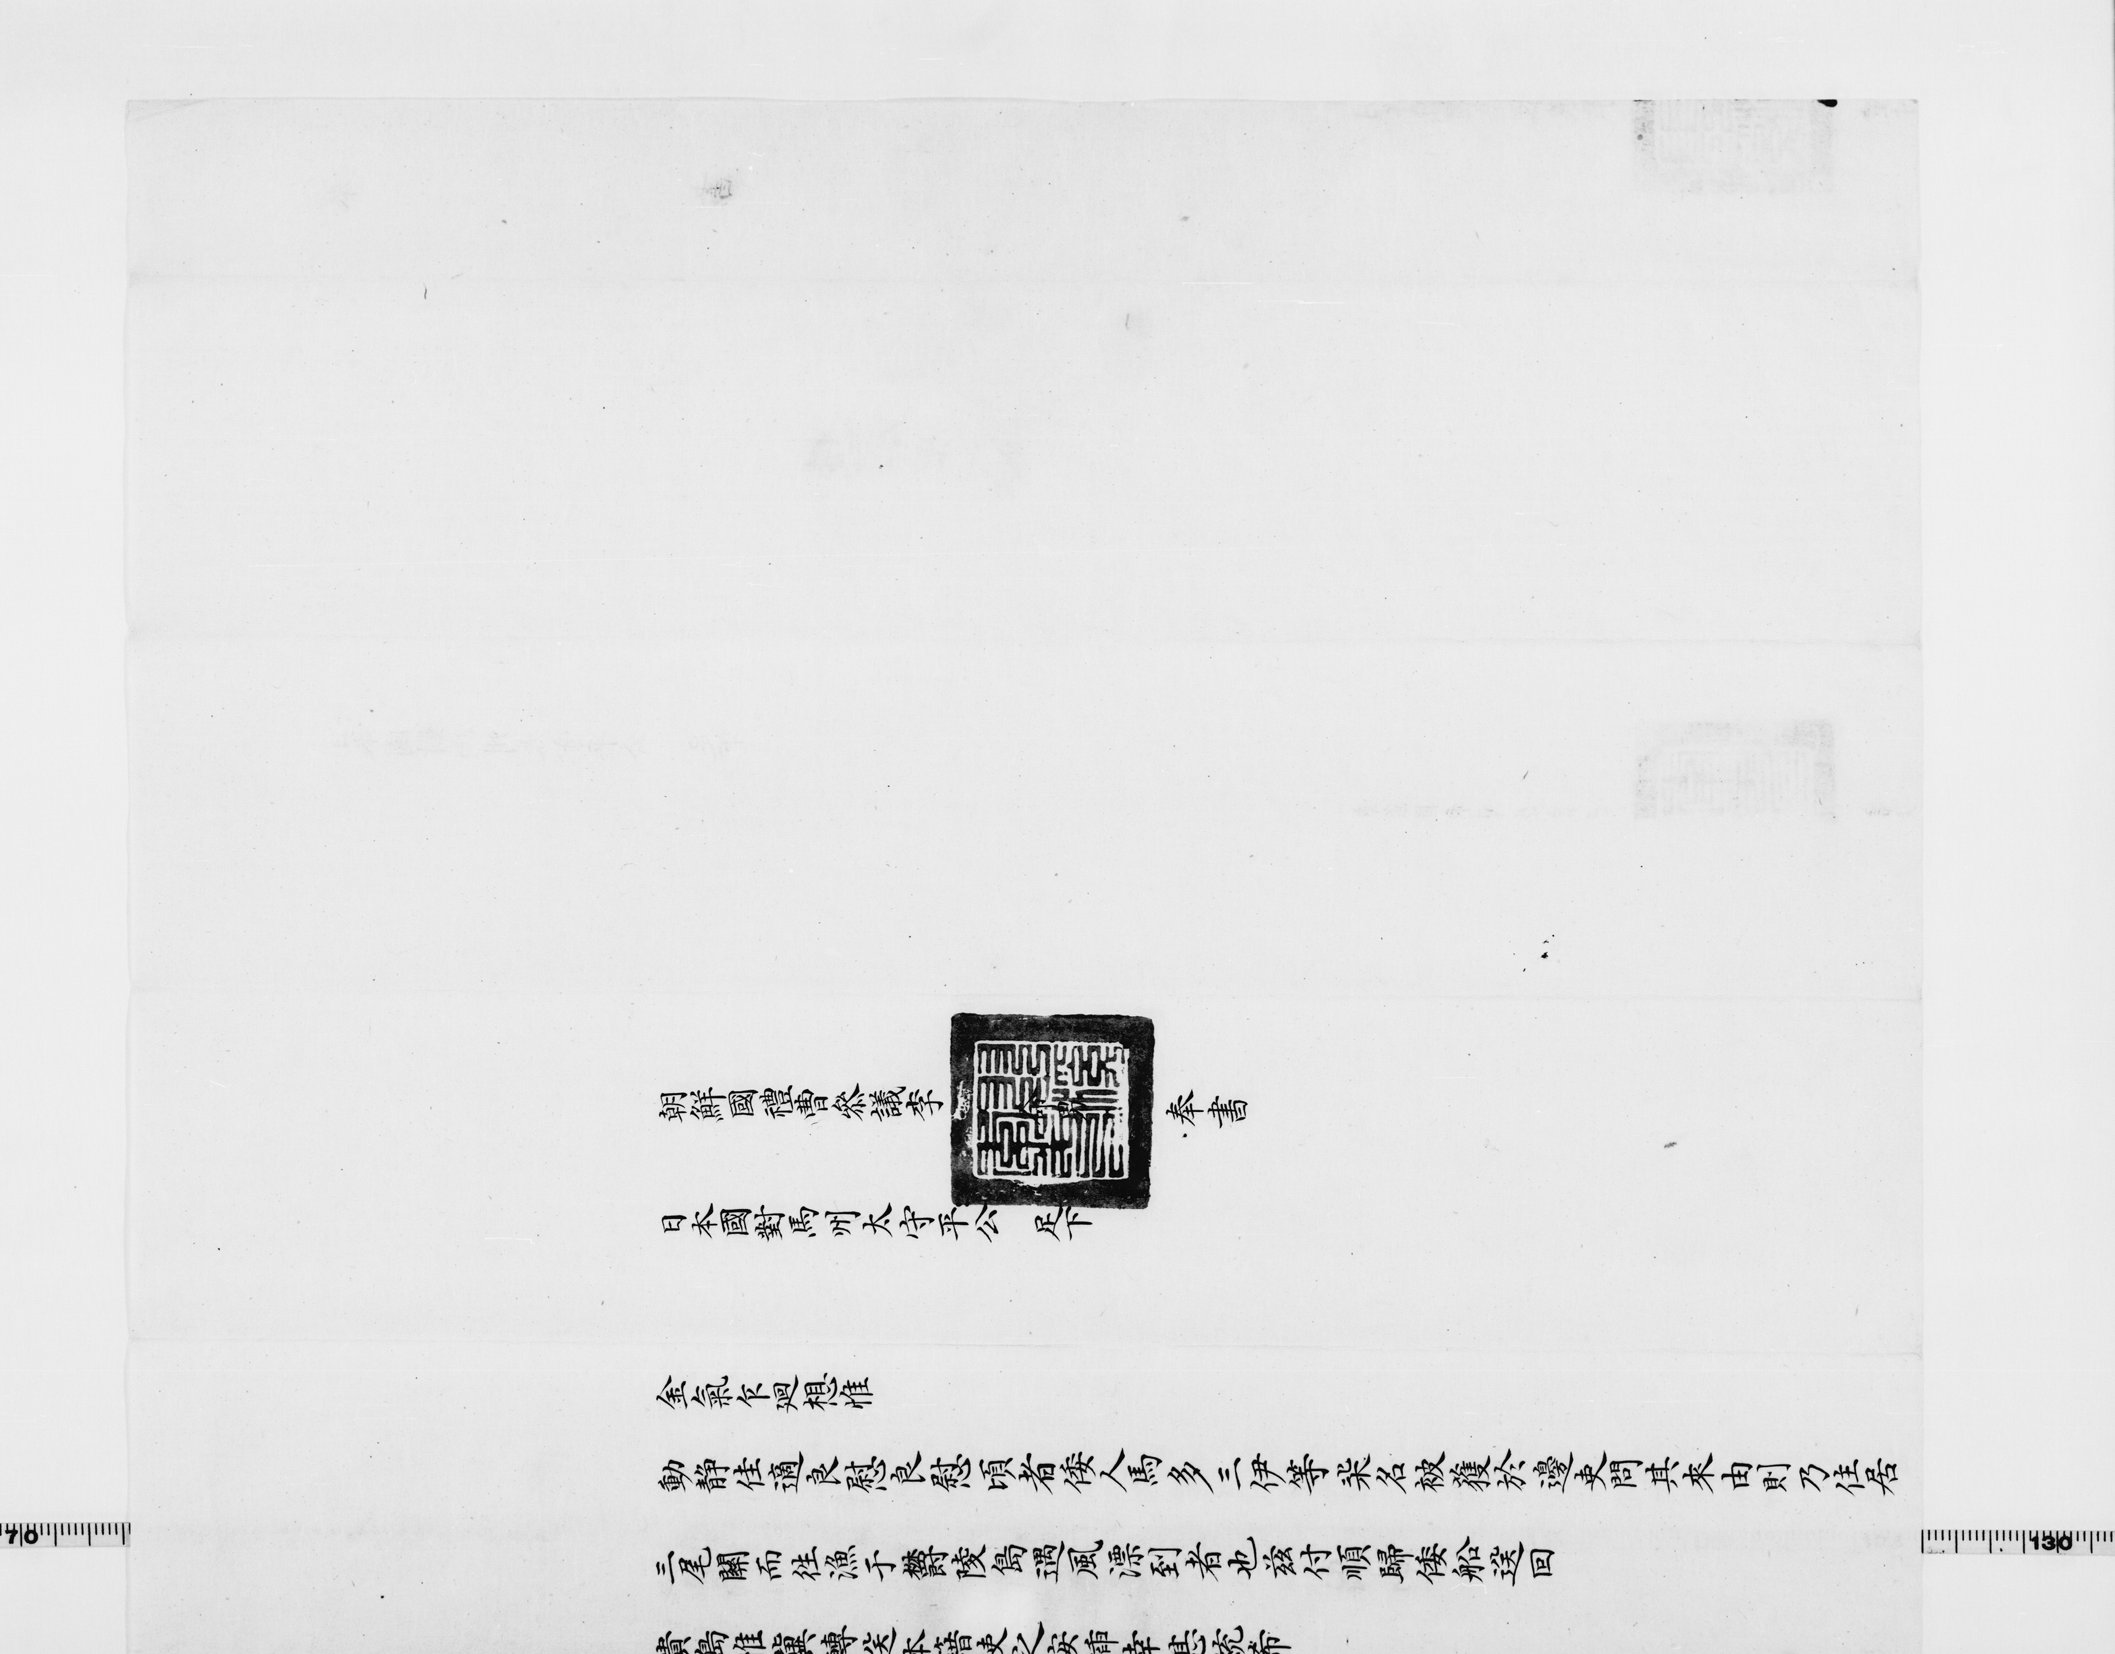 朝鮮國禮曹參議李 奉書
日本國對馬州太守平公 足下
金氣乍廻想惟
動靜佳適良慰良慰頃者倭人馬多三伊等柒名被獲於邊吏問其來由則乃住居
三尾關而往漁于欝陵島遇風漂到者也茲付順歸倭船送回
貴島惟
70
130